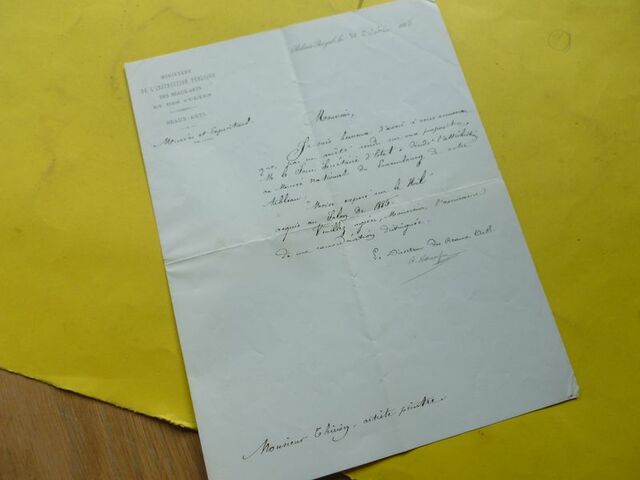 MINISTÈRE
DE L'INSTRUCTION PUBLIQUE
DES BEAUX-ARTS
ET DES CULTES
BEAUX-ARTS
Musées et Expositions
Palais-Royal, le
Monsieur,
J'ai l'honneur d'avoir à vous annoncer
que, par un arrêté rendu sur ma proposition,
M. le Sous-Secrétaire d'État a décidé l'attribution
au Musée national du Luxembourg de votre
tableau
acquis au Salon de
Veuillez agréer, Monsieur, l'assurance
de ma considération distinguée.
Le Directeur des Beaux-Arts
Monsieur Thirion, artiste peintre.